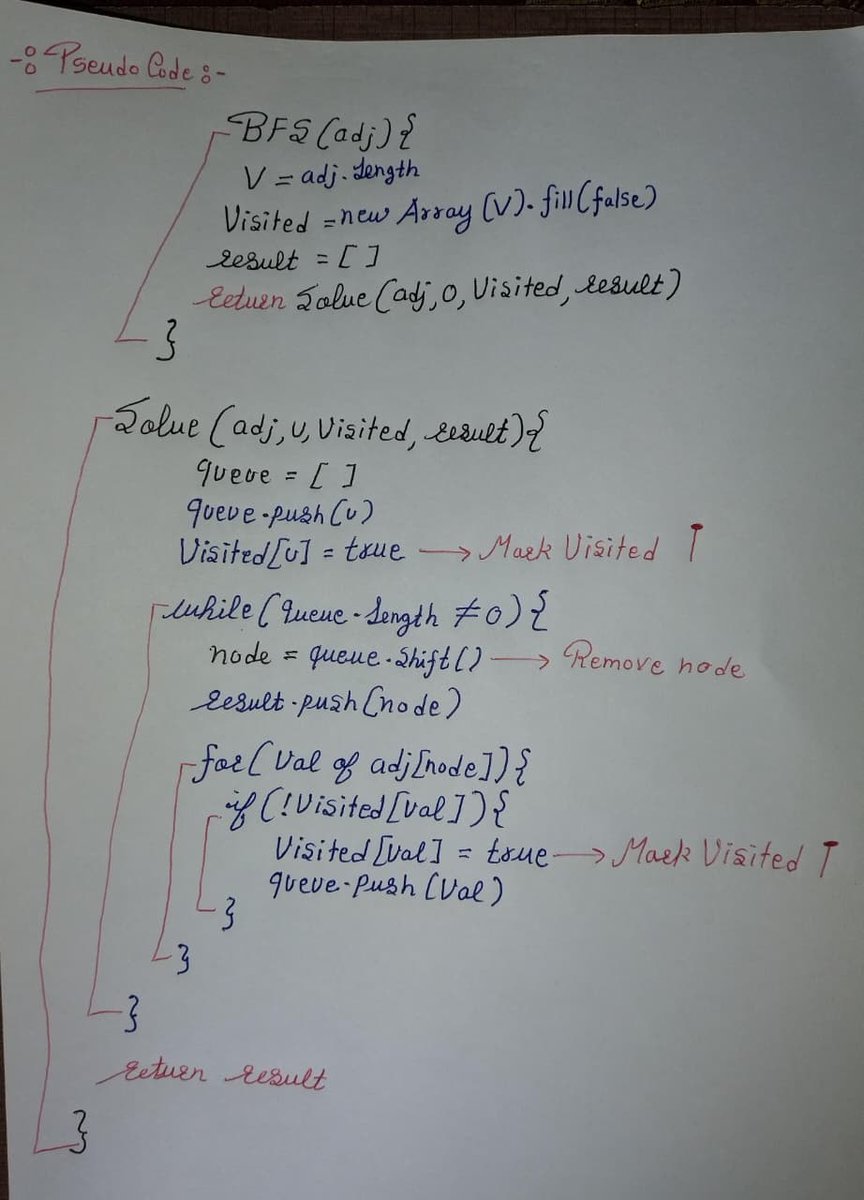 -: Pseudo Code :-
BFS(adj){
V = adj.length
Visited = new Array(V).fill(false)
result = [ ]
return Solve(adj, 0, Visited, result)
}
Solve(adj, u, Visited, result){
queue = [ ]
queue.push(u)
Visited[u] = true → Mark Visited T
while(queue.length ≠ 0){
node = queue.shift() → Remove node
result.push(node)
for(val of adj[node]){
if(!Visited[val]){
Visited[val] = true → Mark Visited T
queue.push(val)
}
}
}
return result
}